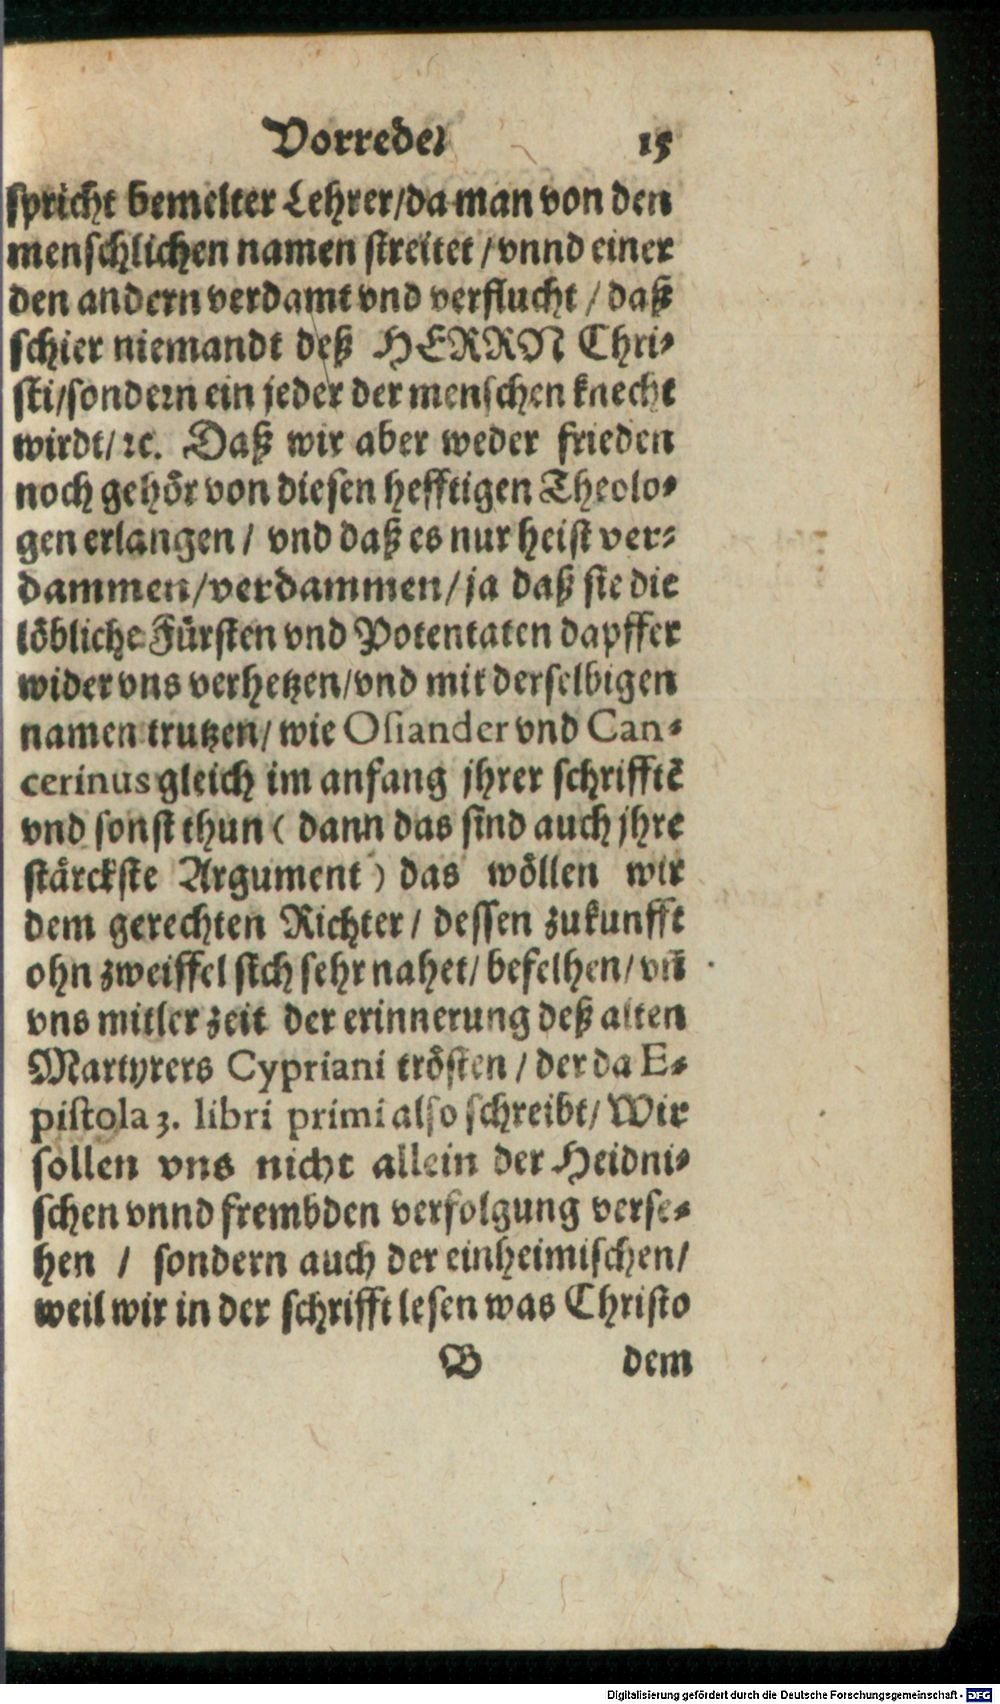 Vorrede. 15
spricht bemelter Lehrer/da man von den
menschlichen namen streitet / vnnd einer
den andern verdamt vnd verflucht / daß
schier niemandt deß HERRN Chri-
sti/sondern ein jeder der menschen knecht
wirdt/ ꝛc. Daß wir aber weder frieden
noch gehoͤr von diesen hefftigen Theolo-
gen erlangen / vnd daß es nur heist ver-
dammen/verdammen/ja daß sie die
loͤbliche Fuͤrsten vnd Potentaten dapffer
wider vns verhetzen/vnd mit derselbigen
namen trutzen/ wie Osiander vnd Can-
cerinus gleich im anfang jhrer schrifftē
vnd sonst thun ( dann das sind auch jhre
staͤrckste Argument ) das woͤllen wir
dem gerechten Richter / dessen zukunfft
ohn zweiffel sich sehr nahet/ befelhen/ vn̄
vns mitler zeit der erinnerung deß alten
Martyrers Cypriani troͤsten / der da E-
pistola 3. libri primi also schreibt/ Wir
sollen vns nicht allein der Heidni-
schen vnnd frembden verfolgung verse-
hen / sondern auch der einheimischen/
weil wir in der schrifft lesen was Christo
B dem
Digitalisierung gefördert durch die Deutsche Forschungsgemeinschaft - DFG